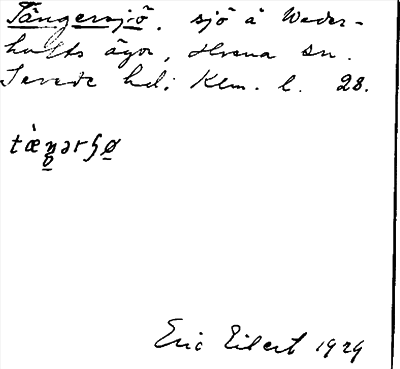 Tängersjö, sjö å Weder-
hults ägor, Hvena sn.
Sevede hd; Klm. l. 28.
tæ̀ŋərʂø
Eric Eilert 1929